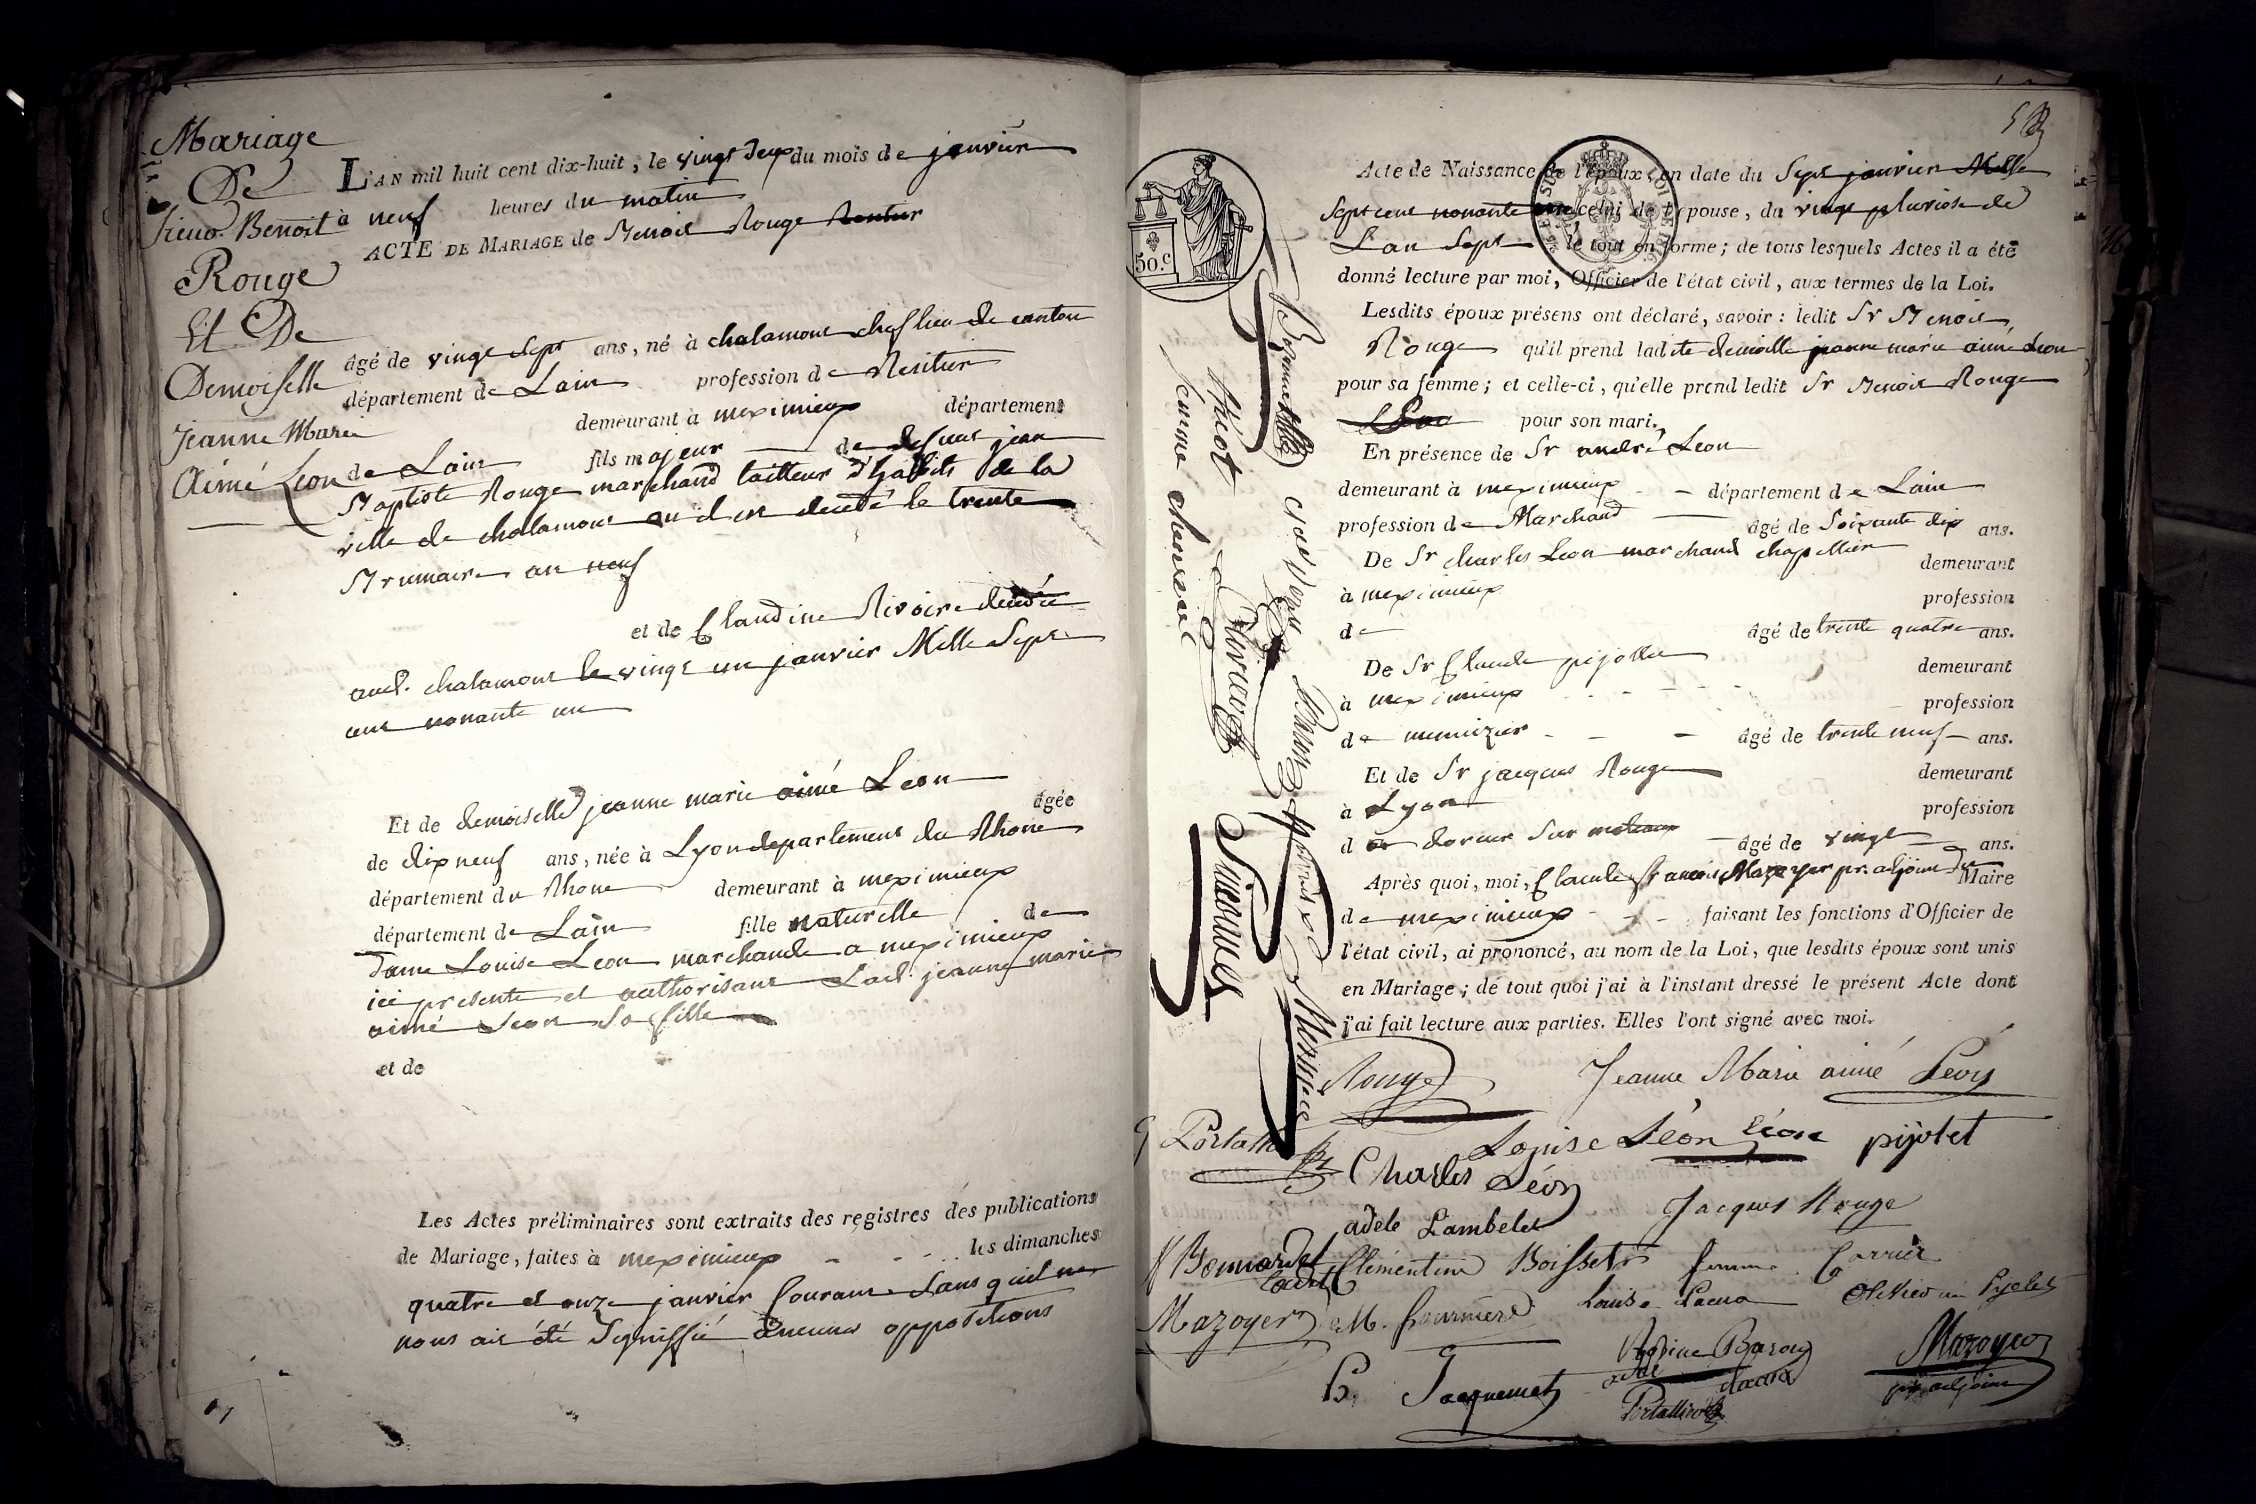 Mariage
De
Sieur Benoit
Rouge
Et De
Demoiselle
Jeanne Marie
Aimé Leon
L'AN mil huit cent dix-huit, le vingt deux du mois de janvier
à neuf heures du matin
ACTE DE MARIAGE de Benoit Rouge Rentier
âgé de vingt Sept ans, né à chalamont chef lieu de canton
département de Lain profession de Rentier
demeurant à meximieux département
de Lain fils majeur de defunt jean
Baptiste Rouge marchand tailleur d'habits de la
ville de chalamont ou il est decedé le trente
Brumaire an neuf
et de Claudine Rivoire decedée
aud. chalamont le vingt un janvier Mille Sept
cent nonante un
Et de demoiselle jeanne marie aimé Leon
âgée
de dix neuf ans, née à Lyon departement du Rhone
département du Rhone demeurant à meximieux
département de Lain fille naturelle de
Dame Louise Leon marchande a meximieux
ici presente et authorisant Lad. jeanne marie
aimé Leon Sa fille
et de
Les Actes préliminaires sont extraits des registres des publications
de Mariage, faites à meximieux les dimanches
quatre et onze janvier Courant Sans quil ne
nous ait été Signiffié aucunes oppositions
50.c
Acte de Naissance de l'époux, en date du Sept janvier Mille
Sept cent nonante un celui de l'épouse, du vingt pluviose de
L'an Sept le tout en forme; de tous lesquels Actes il a été
donné lecture par moi, Officier de l'état civil, aux termes de la Loi.
Lesdits époux présens ont déclaré, savoir: ledit Sr Benoit
Rouge qu'il prend ladite demoiselle jeanne marie aimé Leon
pour sa femme; et celle-ci, qu'elle prend ledit Sr Benoit Rouge
pour son mari.
En présence de Sr andré Leon
demeurant à meximieux département de Lain
profession de Marchand âgé de Soixante dix ans.
De Sr charles Leon marchand chapellier demeurant
à meximieux profession
de âgé de trente quatre ans.
De Sr Claude pijollet demeurant
à meximieux profession
de menuizier âgé de trente neuf ans.
Et de Sr jacques Rouge demeurant
à Lyon profession
de doreur Sur metaux âgé de vingt ans.
Après quoi, moi, Claude francois Mazoyer pr. adjoint du Maire
de meximieux faisant les fonctions d'Officier de
l'état civil, ai prononcé, au nom de la Loi, que lesdits époux sont unis
en Mariage; de tout quoi j'ai à l'instant dressé le présent Acte dont
j'ai fait lecture aux parties. Elles l'ont signé avec moi.
Rouge Jeanne Marie aimé Leon
Louise Léon Léon pijolet
Charles Léon
adele Lambelet Jacques Rouge
Clémentine Boisset femme Carrier
Mazoyer M. fournier Louise
Jacquemet Mazoyer
pr. adjoint